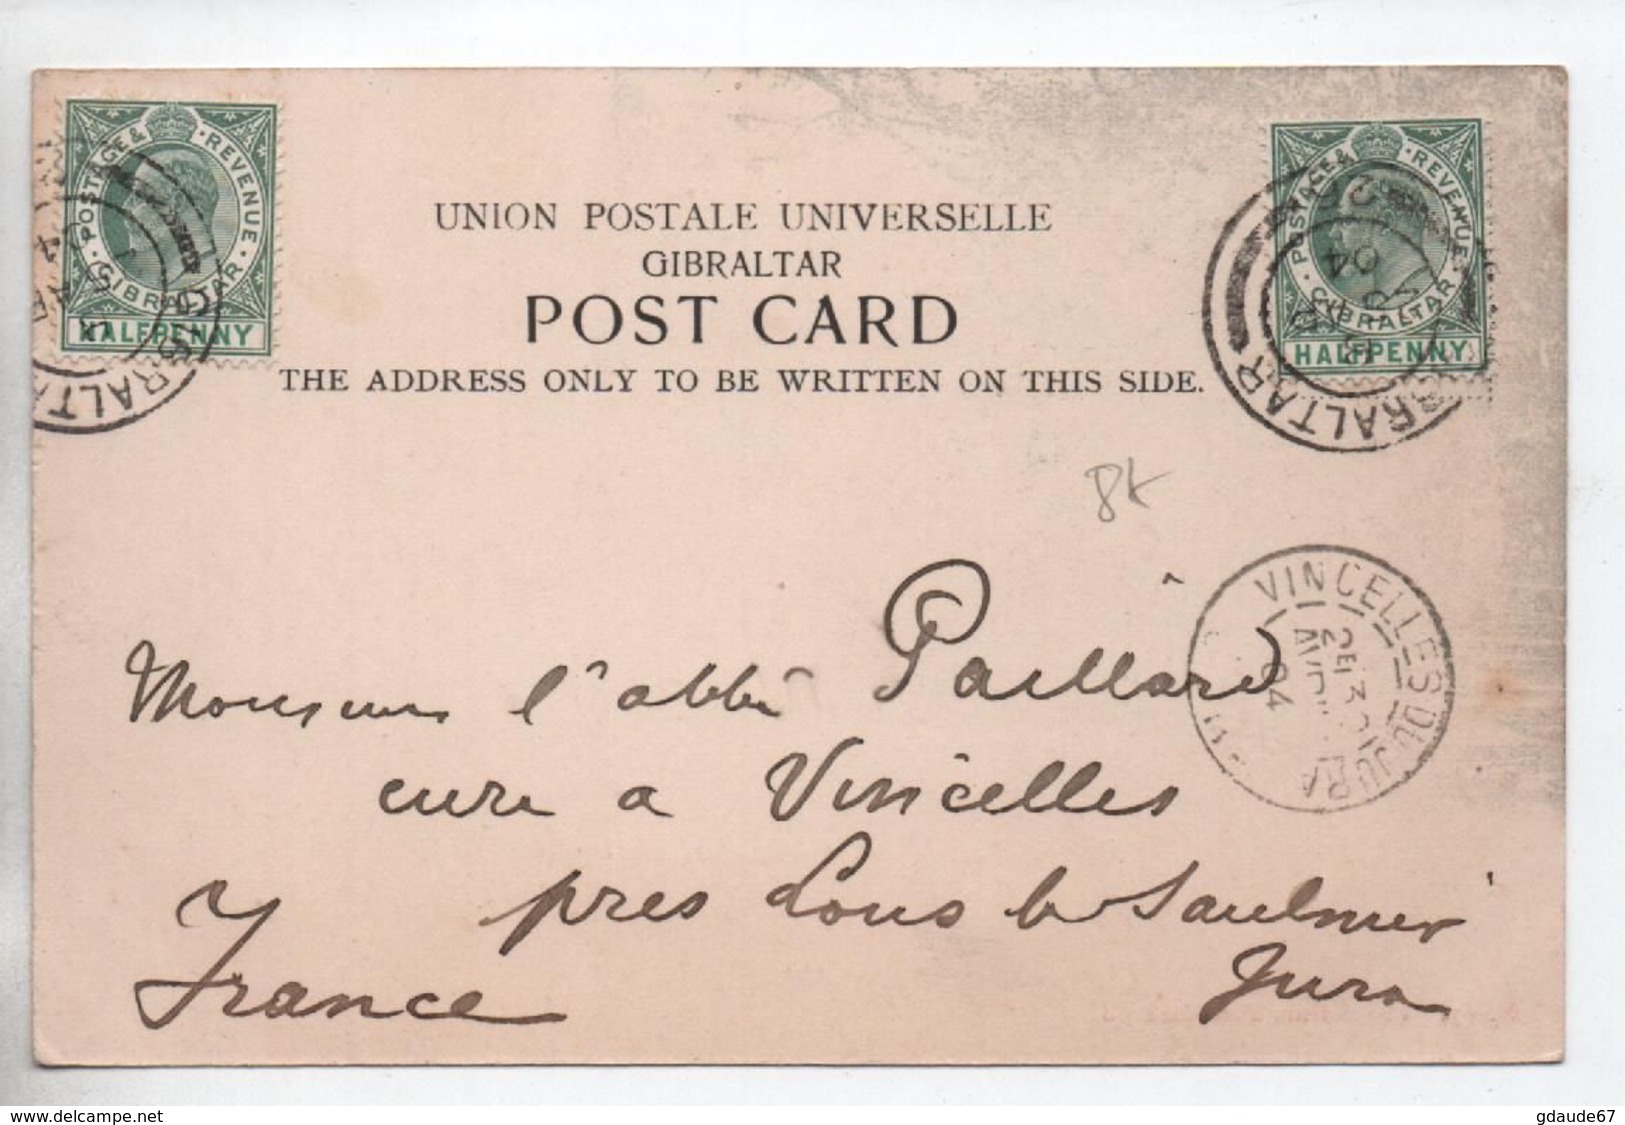 POSTAGE & REVENUE
GIBRALTAR
HALFPENNY
POSTAGE & REVENUE
GIBRALTAR
HALFPENNY
UNION POSTALE UNIVERSELLE
GIBRALTAR
POST CARD
THE ADDRESS ONLY TO BE WRITTEN ON THIS SIDE.
GIBRALTAR
04
8k
VINCELLES DU JURA
04
Monsieur l'abbé Paillard
cure a Vincelles
pres Lons le Saulnier
Jura
France
www.delcampe.net
gdaude67